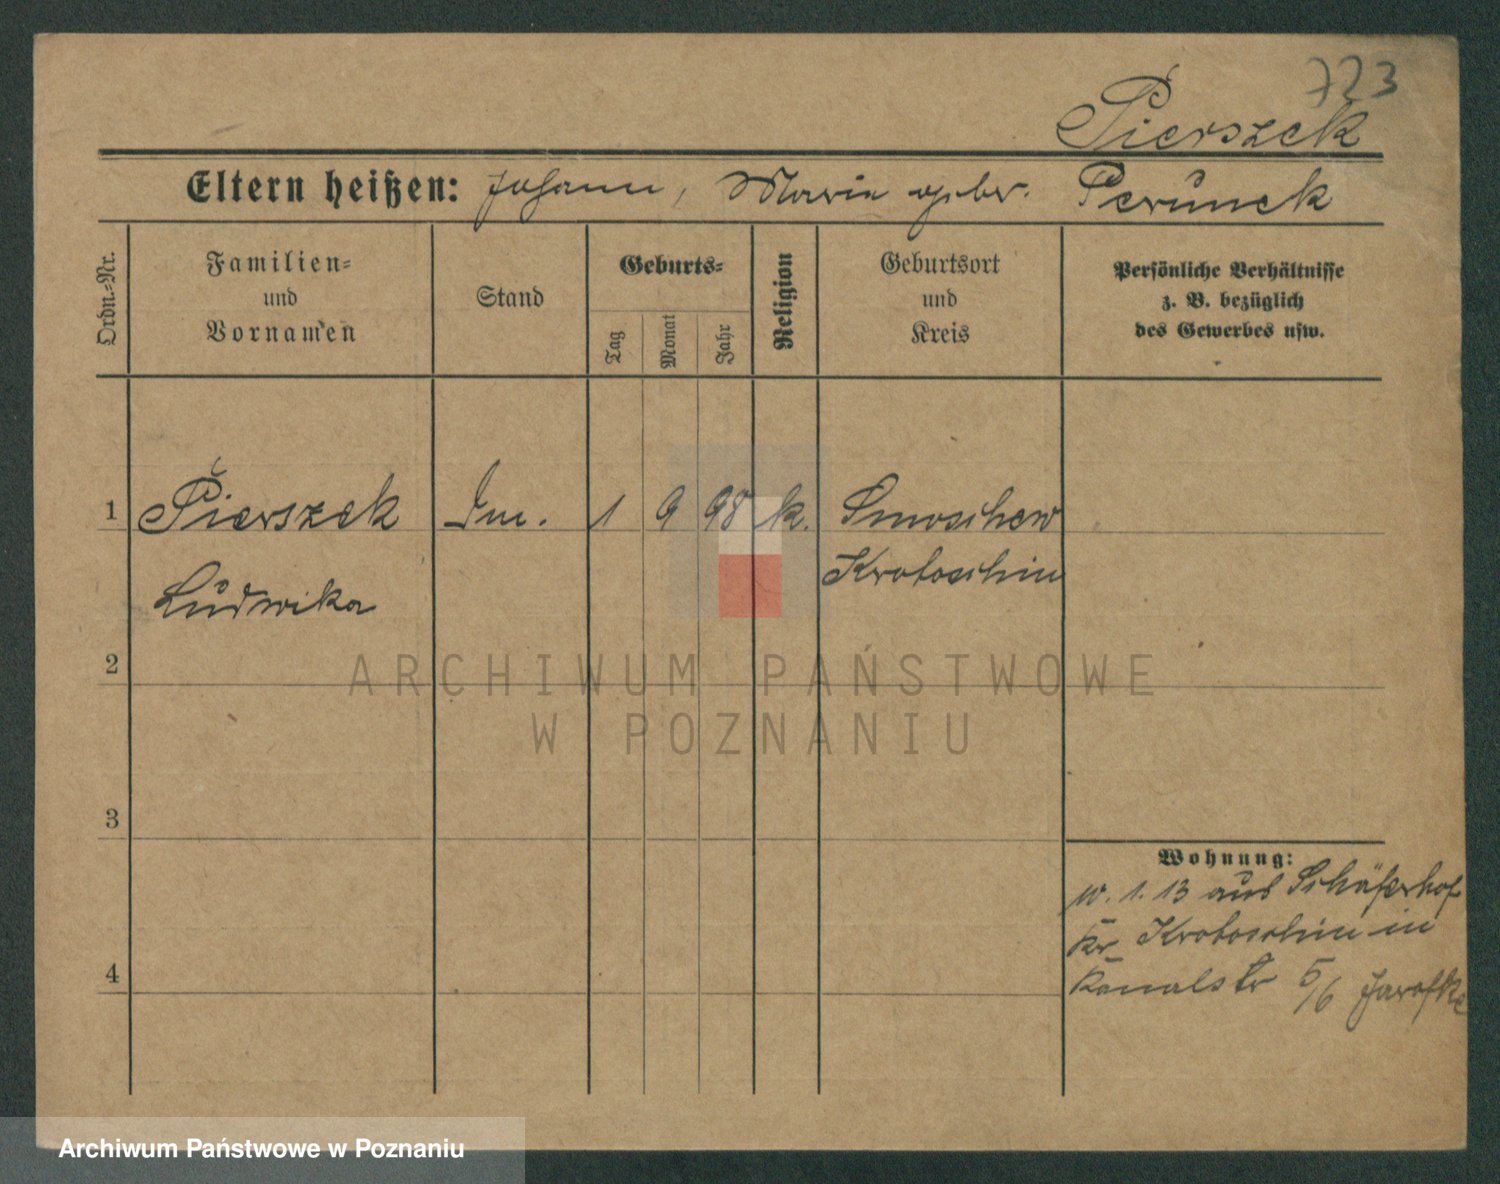 723
Pierszek
Eltern heißen: Johann, Maria gebr. Perunek
Ordn.-Nr.
Familien-
und
Vornamen
Stand
Geburts-
Tag
Monat
Jahr
Religion
Geburtsort
und
Kreis
Persönliche Verhältnisse
z. B. bezüglich
des Gewerbes usw.
1 Pierszek 1 9 98 k. Smoschew
Krotoschin
Ludwika
2
ARCHIWUM PAŃSTWOWE
W POZNANIU
3
Wohnung:
1. 13 aus Schäferhof
Kr. Krotoschin in
4
Kanalstr 5/6
Archiwum Państwowe w Poznaniu